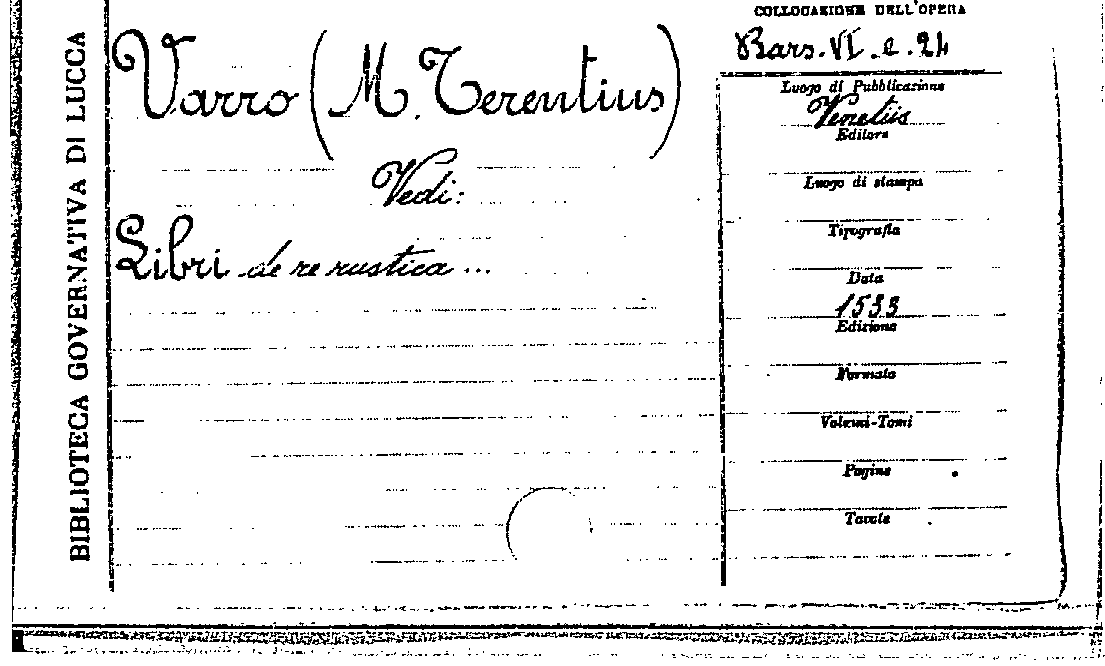 BIBLIOTECA GOVERNATIVA DI LUCCA
Varro (M. Terentius)
Vedi:
Libri de re rustica ...
COLLOCAZIONE DELL'OPERA
Bars. VI. e. 24
Luogo di Pubblicazione
Venetiis
Editore
Luogo di stampa
Tipografia
Data
1533
Edizione
Formato
Volumi-Tomi
Pagine
Tavole